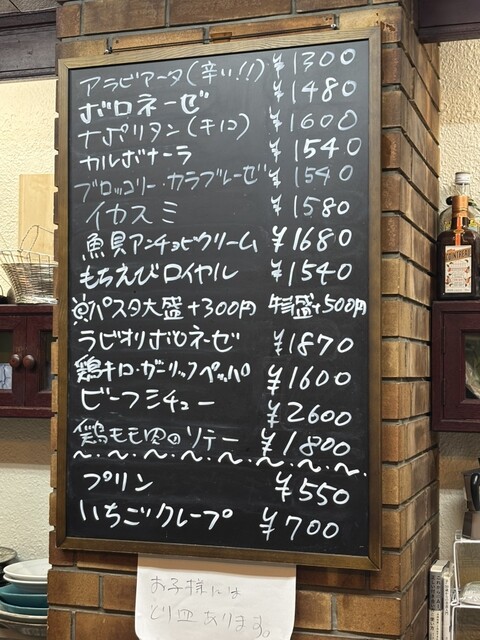 アラビアータ(辛い!!) ¥1300
ボロネーゼ ¥1480
ナポリタン(キノコ) ¥1600
カルボナーラ ¥1540
ブロッコリー・カラブレーゼ ¥1540
イカスミ ¥1580
魚貝アンチョビクリーム ¥1680
もちえびロイヤル ¥1540
パスタ大盛+300円 特盛+500円
ラビオリボロネーゼ ¥1870
鶏キロ・ガーリックペッパー ¥1600
ビーフシチュー ¥2600
鶏モモ肉のソテー ¥1800
プリン ¥550
いちごクレープ ¥700
お子様には
とり皿あります。